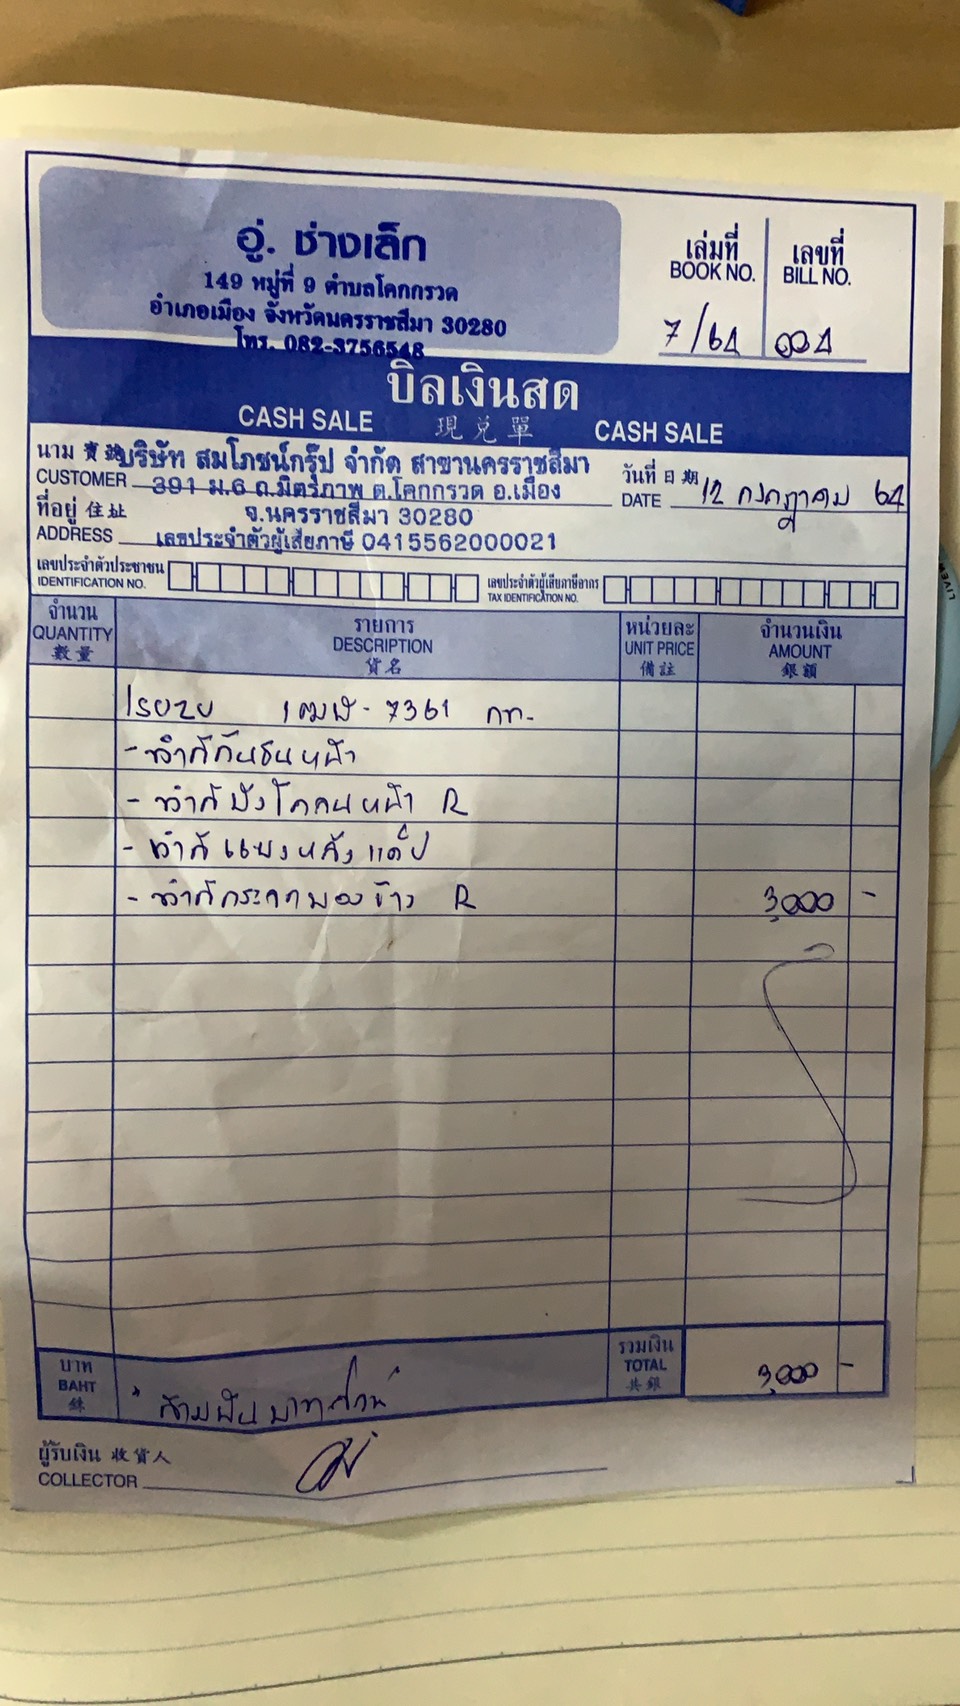 อู่. ช่างเล็ก
149 หมู่ที่ 9 ตำบลโคกกรวด
อำเภอเมือง จังหวัดนครราชสีมา 30280
โทร. 082-3756548
เล่มที่ เลขที่
BOOK NO. BILL NO.
7/64 004
บิลเงินสด
CASH SALE 現兑單 CASH SALE
นาม 寶號 บริษัท สมโภชน์กรุ๊ป จำกัด สาขานครราชสีมา
CUSTOMER 391 ม.6 ถ.มิตรภาพ ต.โคกกรวด อ.เมือง
วันที่ 日期
DATE 12 กรกฎาคม 64
ที่อยู่ 住址 จ.นครราชสีมา 30280
ADDRESS เลขประจำตัวผู้เสียภาษี 0415562000021
เลขประจำตัวประชาชน เลขประจำตัวผู้เสียภาษีอากร
IDENTIFICATION NO. TAX IDENTIFICATION NO.
จำนวน รายการ หน่วยละ จำนวนเงิน
QUANTITY DESCRIPTION UNIT PRICE AMOUNT
數量 貨名 備註 銀額
ISUZU 7361 กท.
- ทำสีกันชนหน้า
- ทำสีบังโคลนหน้า R
- ทำสีแผงหลังแค็ป
- ทำสีกระจกมองข้าง R 3,000 -
บาท รวมเงิน
BAHT TOTAL 3,000 -
銖 สามพันบาทถ้วน 共銀
ผู้รับเงิน 收貨人
COLLECTOR